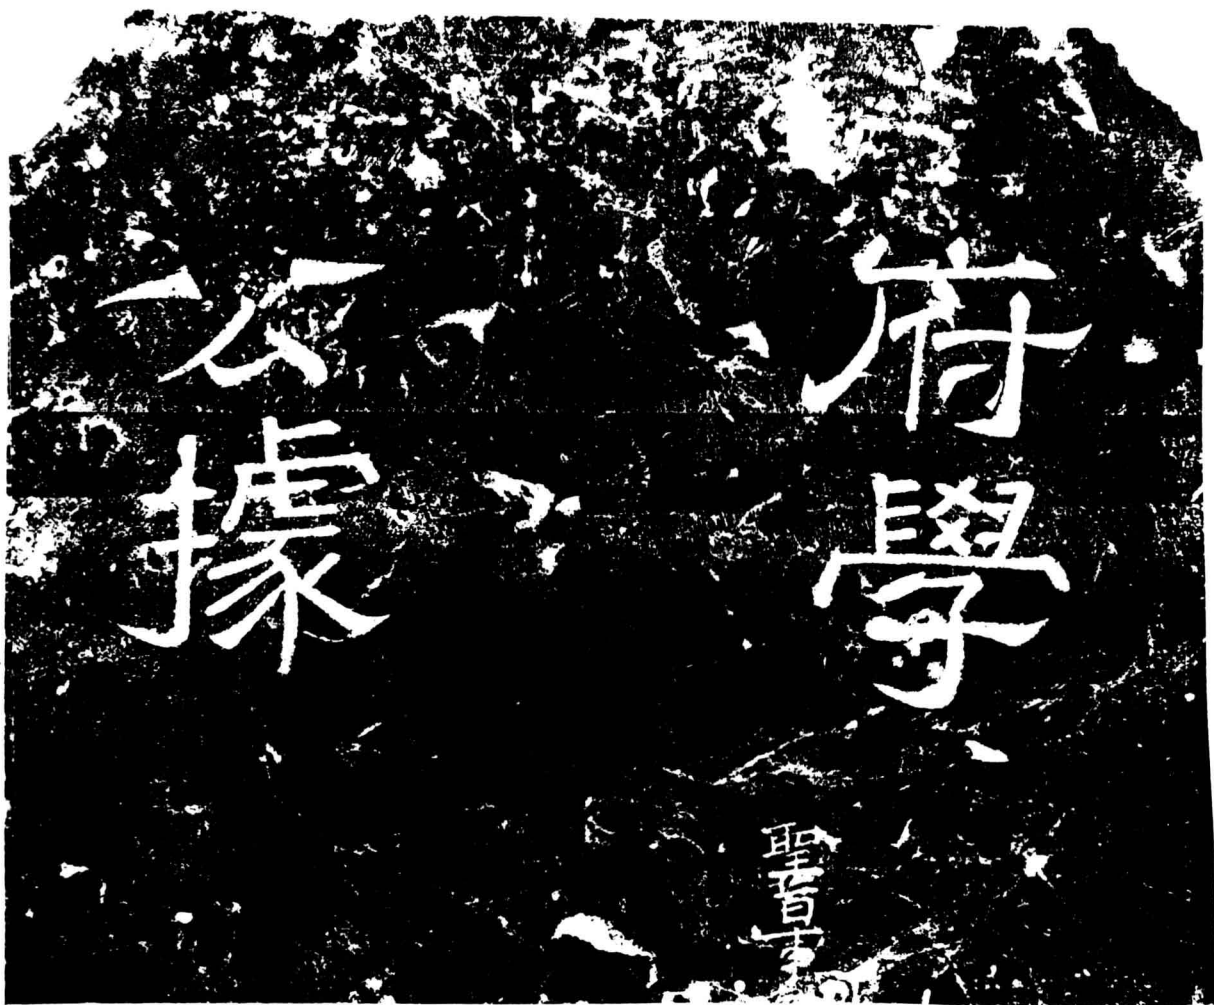 府學
公據
聖旨